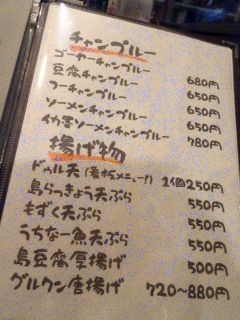 チャンプルー
ゴーヤーチャンプルー 680円
豆腐チャンプルー 650円
フーチャンプルー 650円
ソーメンチャンプルー 650円
イカ墨ソーメンチャンプルー 780円
揚げ物
ドゥル天(看板メニュー!) 2個250円
島らっきょう天ぷら 550円
もずく天ぷら 550円
うちなー魚天ぷら 550円
島豆腐厚揚げ 500円
グルクン唐揚げ 720〜880円